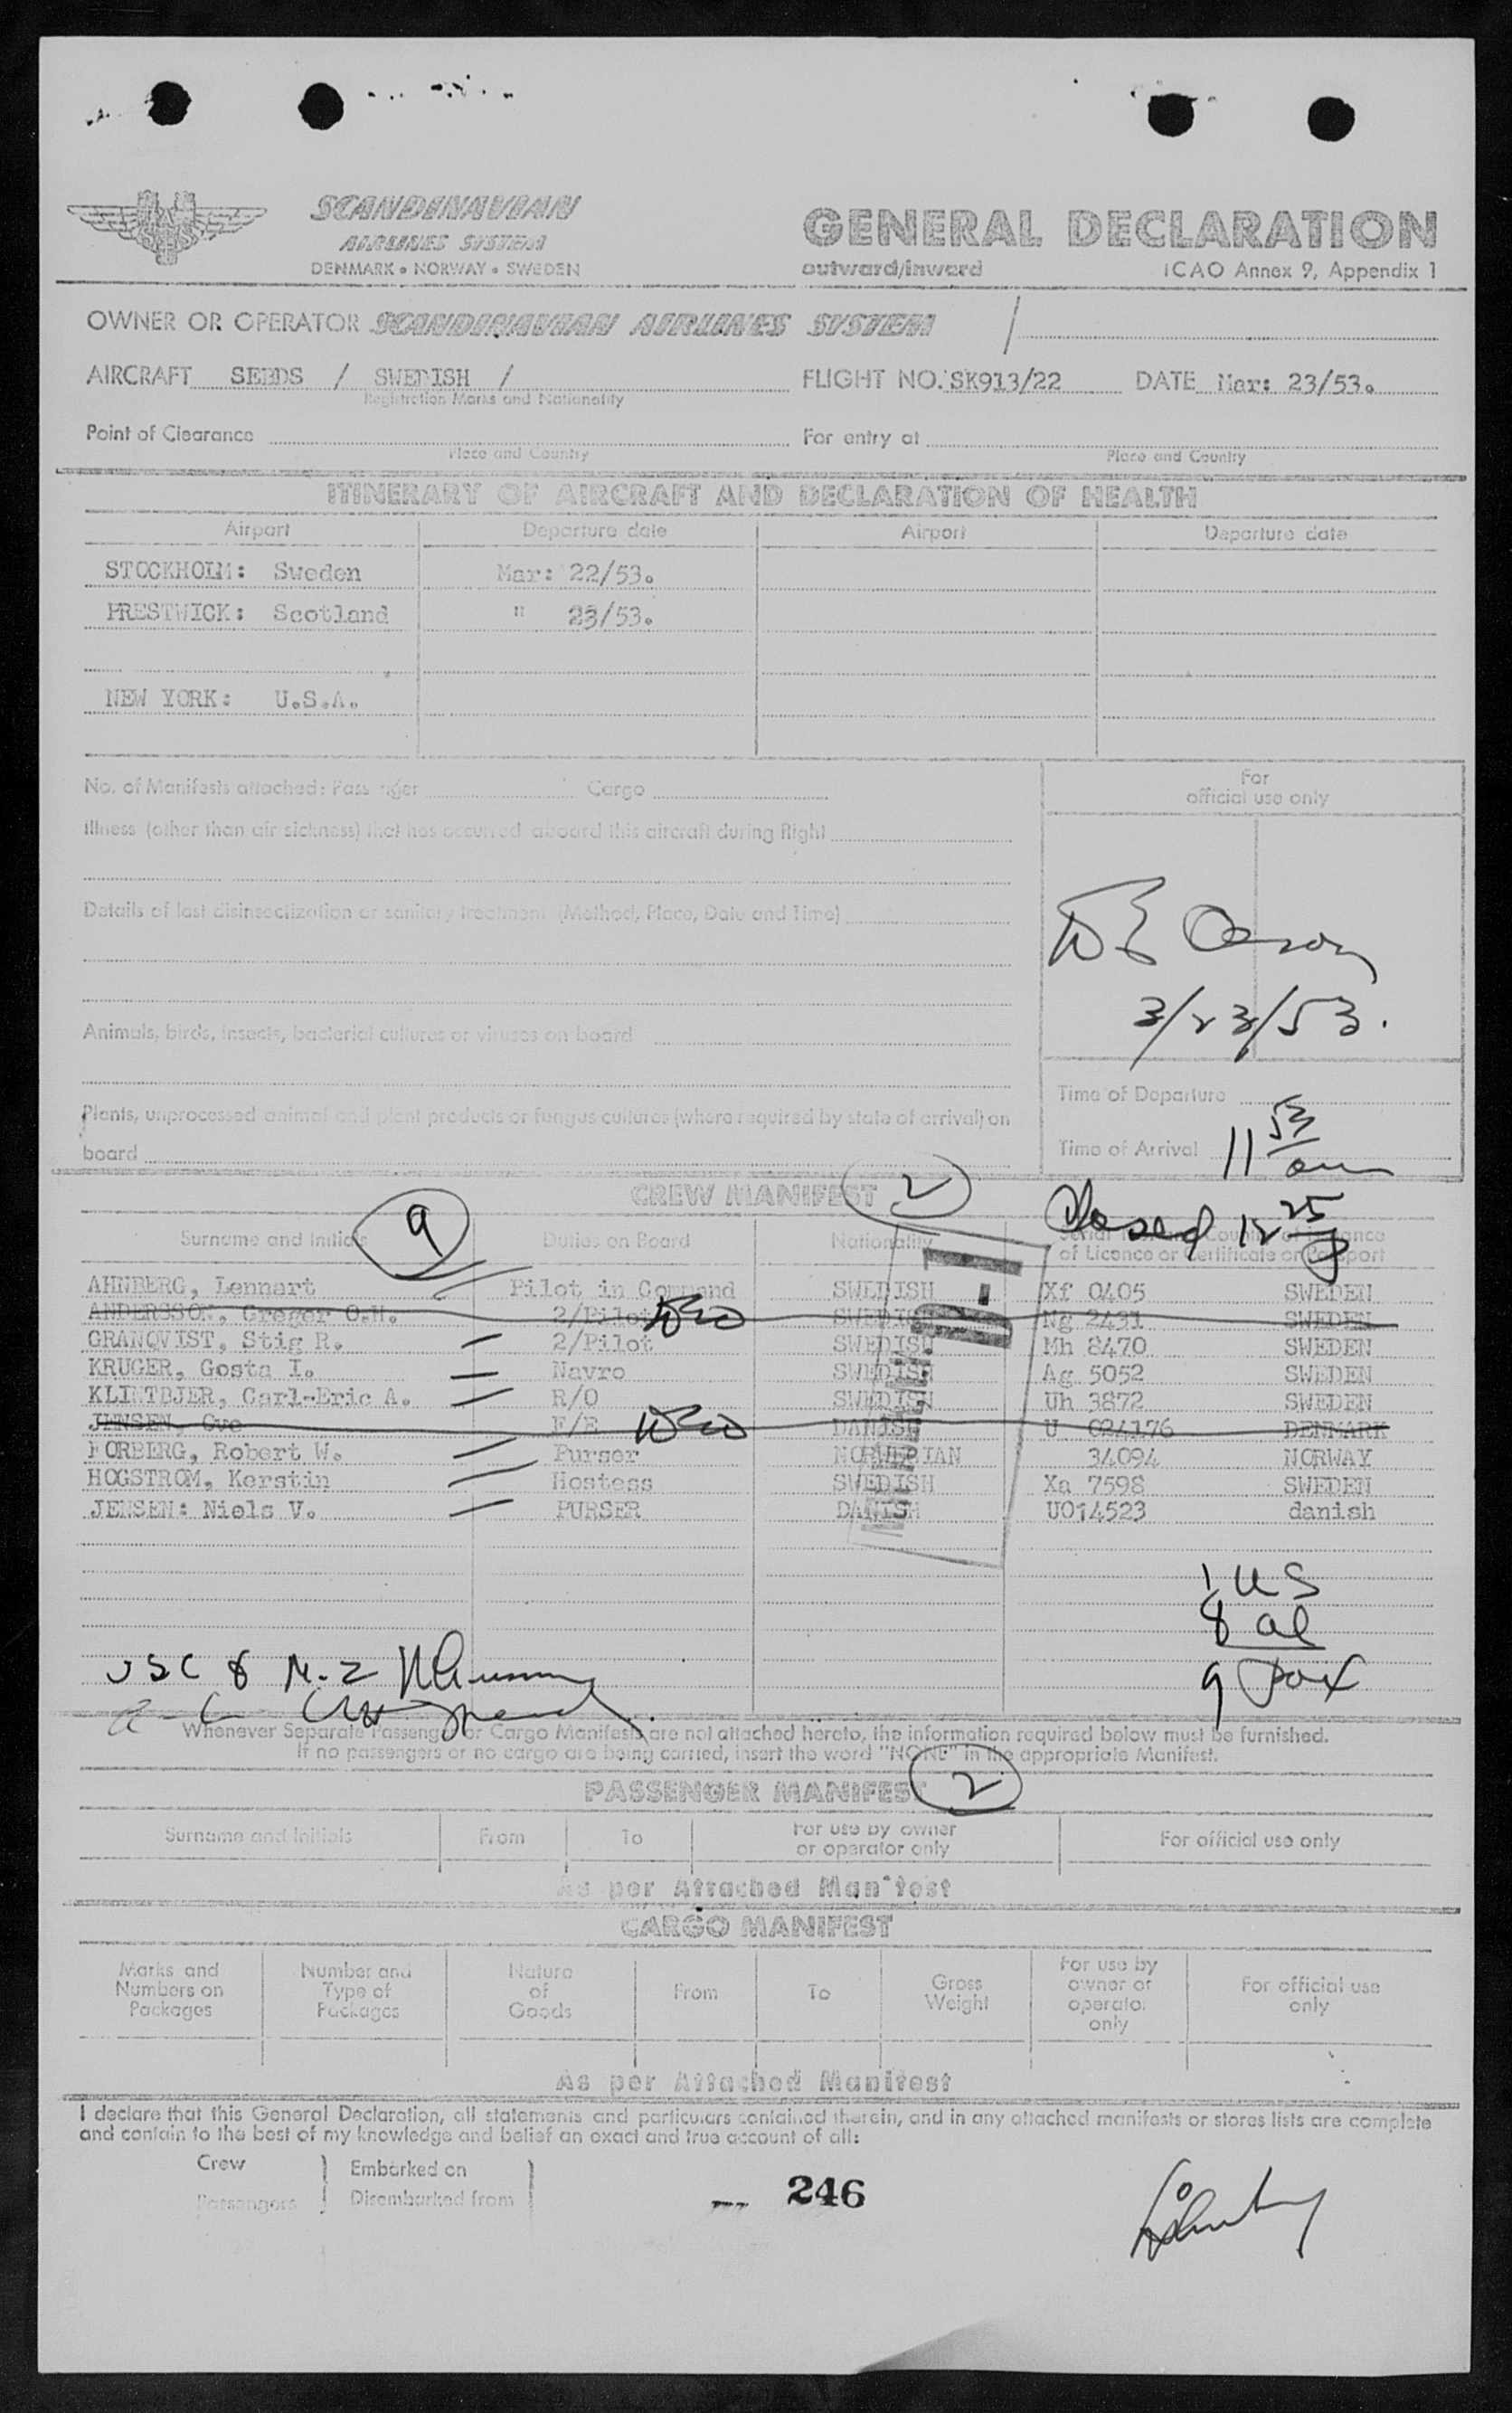 SCANDINAVIAN
AIRLINES SYSTEM
DENMARK • NORWAY • SWEDEN
GENERAL DECLARATION
outward/inward
ICAO Annex 9, Appendix 1
OWNER OR OPERATOR SCANDINAVIAN AIRLINES SYSTEM /
AIRCRAFT SEBDS / SWEDISH / FLIGHT NO. SK913/22 DATE Mar: 23/53.
Registration Marks and Nationality
Point of Clearance For entry at
Place and Country Place and Country
ITINERARY OF AIRCRAFT AND DECLARATION OF HEALTH
Airport Departure date Airport Departure date
STOCKHOLM: Sweden Mar: 22/53.
PRESTWICK: Scotland " 23/53.
NEW YORK: U.S.A.
No. of Manifests attached: Passenger Cargo
For
official use only
Illness (other than air sickness) that has occurred aboard this aircraft during flight
Details of last disinsectization or sanitary treatment (Method, Place, Date and Time)
3/23/53.
Animals, birds, insects, bacterial cultures or viruses on board
Time of Departure
Plants, unprocessed animal and plant products or fungus cultures (where required by state of arrival) on
board
Time of Arrival 11 53 am
CREW MANIFEST 2
Closed 12 25 p
9
Surname and Initials Duties on Board Nationality
of Licence or Certificate or Passport
AHNBERG, Lennart Pilot in Command SWEDISH Xf 0405 SWEDEN
ANDERSSON, Greger O.H. 2/Pilot SWEDISH Ng 2431 SWEDEN
GRANQVIST, Stig R. 2/Pilot SWEDISH Mh 8470 SWEDEN
KRUGER, Gosta I. Navro SWEDISH Ag 5052 SWEDEN
KLINTBJER, Carl-Eric A. R/O SWEDISH Uh 3872 SWEDEN
JENSEN, Ove F/E DANISH U 024176 DENMARK
FORBERG, Robert W. Purser NORWEGIAN 34094 NORWAY
HOGSTROM, Kerstin Hostess SWEDISH Xa 7598 SWEDEN
JENSEN: Niels V. PURSER DANISH U014523 danish
1 US
8 al
9 Pax
Whenever Separate Passenger or Cargo Manifests are not attached hereto, the information required below must be furnished.
If no passengers or no cargo are being carried, insert the word "NONE" in the appropriate Manifest.
PASSENGER MANIFEST 2
Surname and Initials From To For use by owner
or operator only For official use only
As per Attached Manifest
CARGO MANIFEST
Marks and
Numbers on
Packages
Number and
Type of
Packages
Nature
of
Goods
From
To
Gross
Weight
For use by
owner or
operator
only
For official use
only
As per Attached Manifest
I declare that this General Declaration, all statements and particulars contained therein, and in any attached manifests or stores lists are complete
and contain to the best of my knowledge and belief an exact and true account of all:
Crew Embarked on
Passengers Disembarked from
246